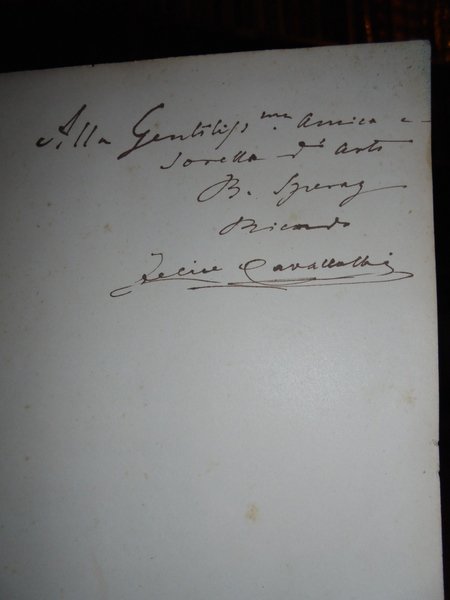 Alla Gentiliss.ma Amica e
Sorella d'Arte
B. Speraz
Ricordo
Felice Cavallotti